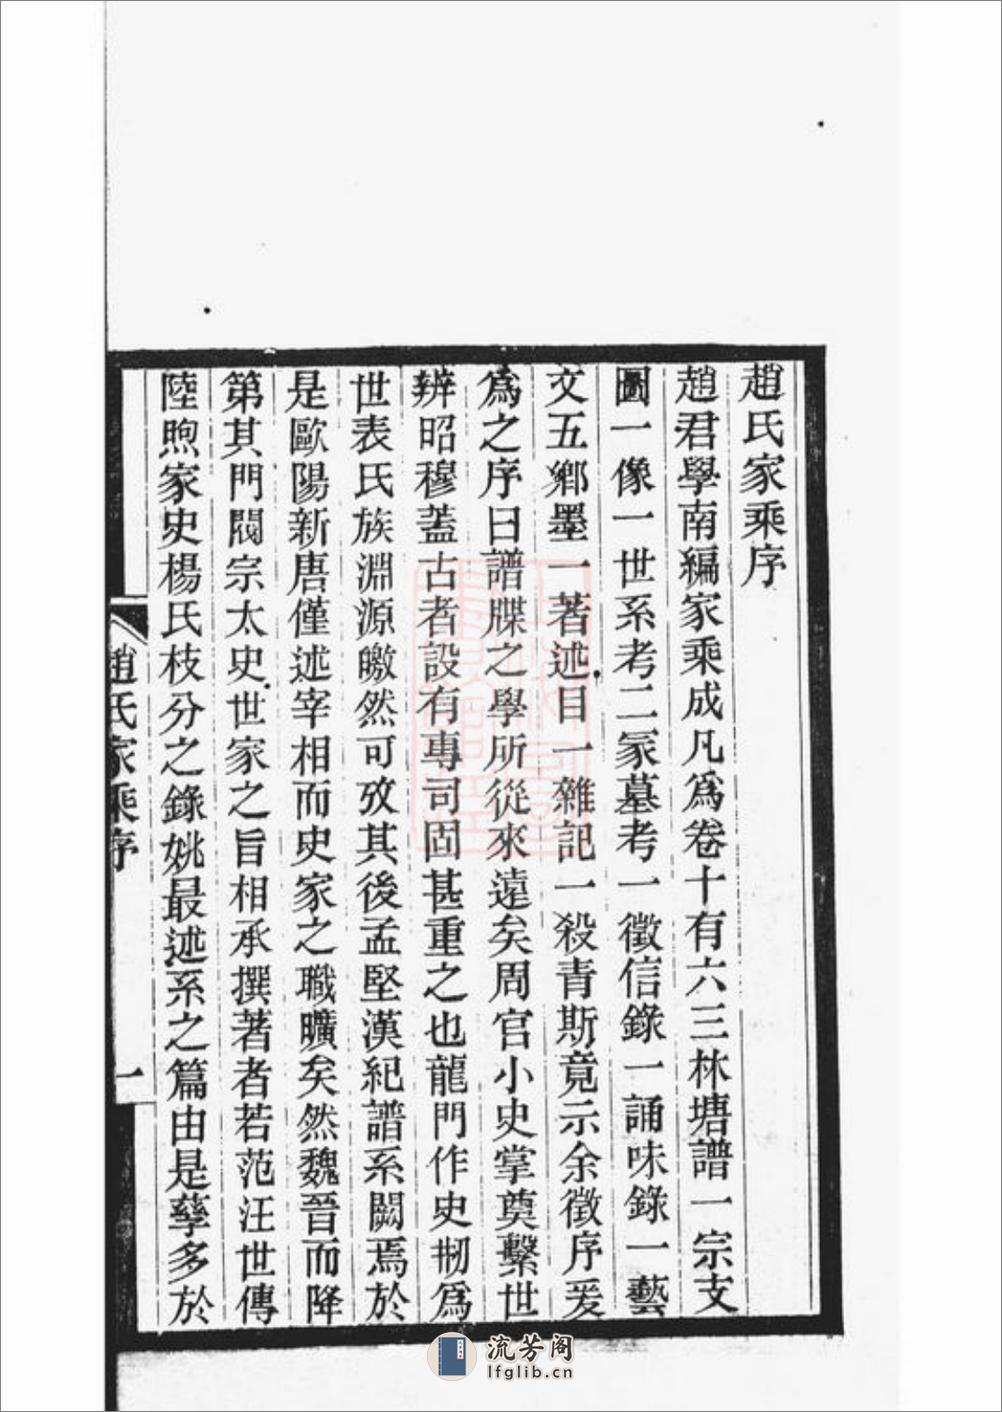 趙氏家乘序
趙君學南編家乘成凡為卷十有六三林塘譜一宗支
圖一像一世系考二冢墓考一徵信錄一誦味錄一藝
文五鄉墨一著述目一雜記一殺青斯竟示余徵序爰
為之序曰譜牒之學所從來遠矣周官小史掌奠繫世
辨昭穆蓋古者設有專司固甚重之也龍門作史刱為
世表氏族淵源皦然可攷其後孟堅漢紀譜系闕焉於
是歐陽新唐僅述宰相而史家之職曠矣然魏晉而降
第其門閥宗太史世家之旨相承撰著者若范汪世傳
陸煦家史楊氏枝分之錄姚最述系之篇由是孳多於
趙氏家乘序
一
流芳阁
lfglib.cn